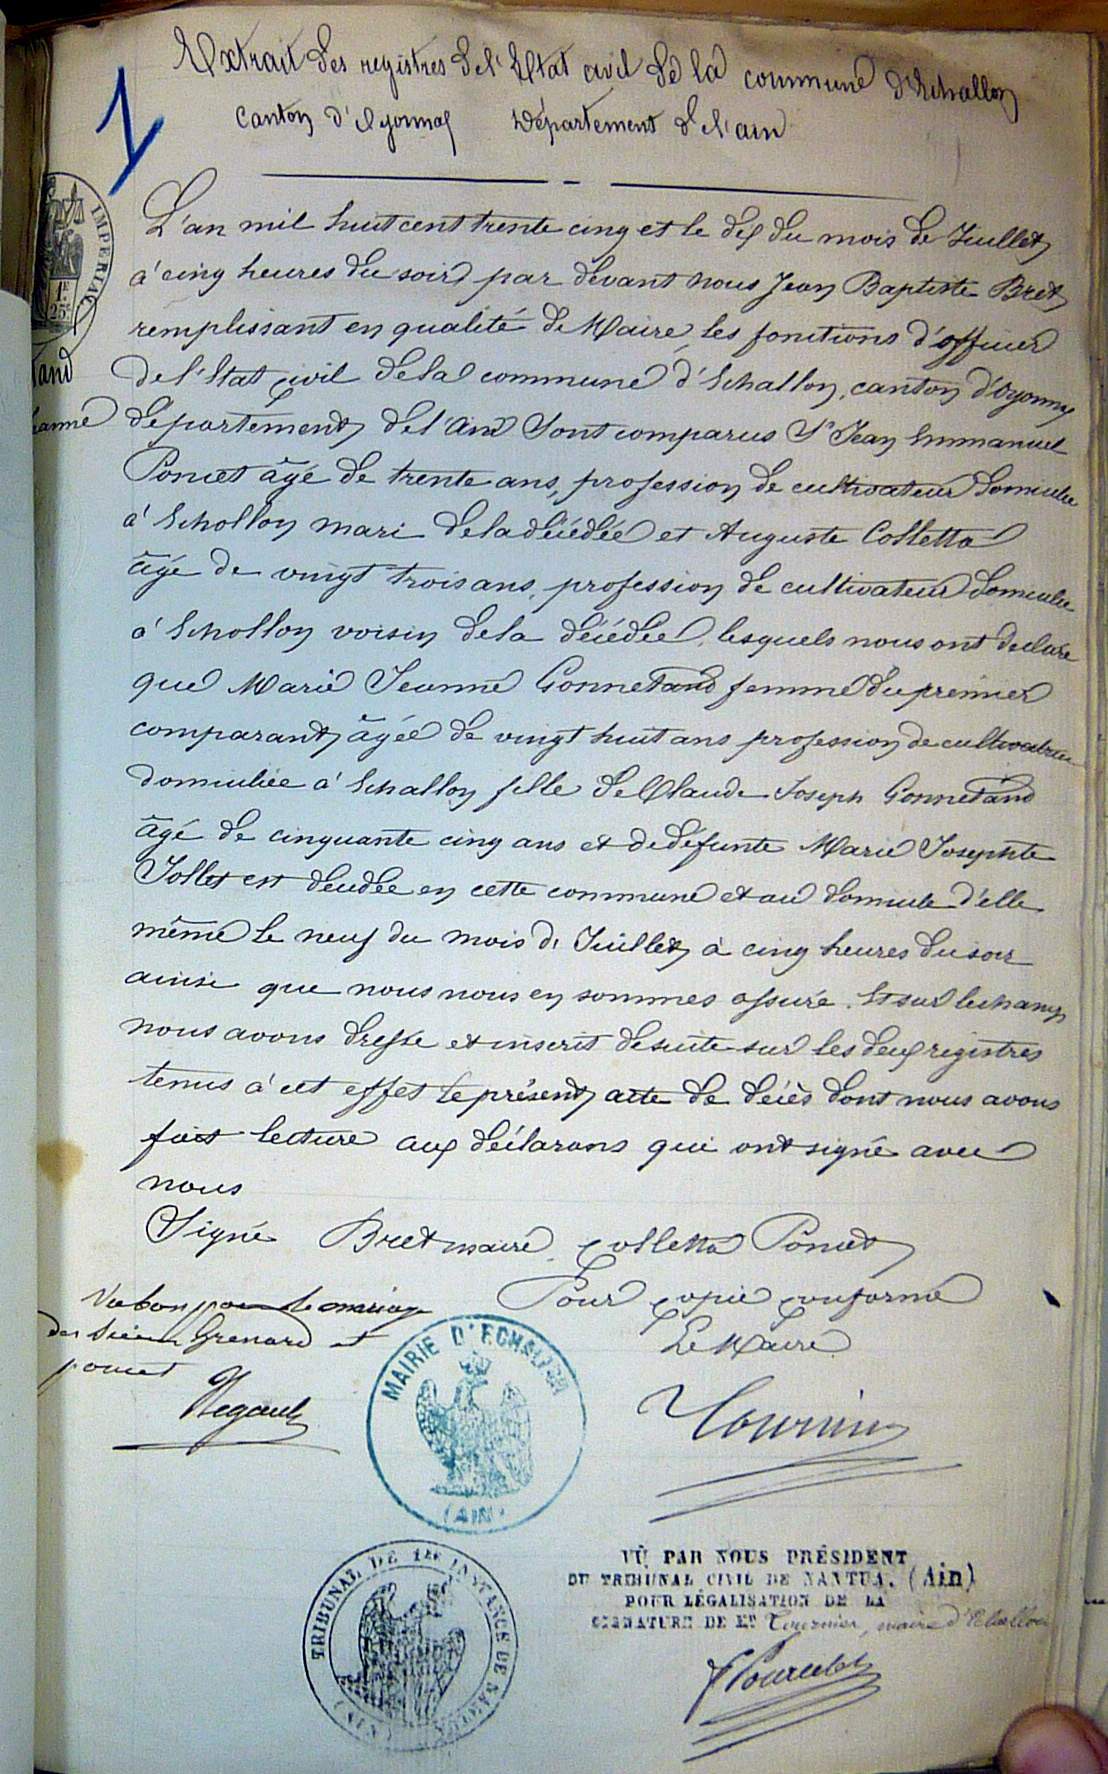 Extrait des registres de l'Etat civil de la commune d'Echallon
canton d'Oyonnax Département de l'ain
1
IMPERIAL
1F
25c
tand
eanne
L'an mil huit cent trente cinq et le dix du mois de Juillet
à cinq heures du soir par devant nous Jean Baptiste Bret
remplissant en qualité de Maire les fonctions d'officier
de l'Etat civil de la commune d'Echallon, canton d'Oyonnax
département de l'ain Sont comparus Sr Jean Emmanuel
Poncet âgé de trente ans, profession de cultivateur domicilié
à Echollon mari de la décédée et Auguste Colletta
âgé de vingt trois ans, profession de cultivateur domicilié
à Echollon voisin de la décédée, lesquels nous ont déclaré
que Marie Jeanne Gonnetand femme du premier
comparant, âgée de vingt huit ans profession de cultivatrice
domiciliée à Echallon fille de Claude Joseph Gonnetand
âgé de cinquante cinq ans et de défunte Marie Josephte
Jollet est décédée en cette commune et au domicile d'elle
même le neuf du mois de Juillet à cinq heures du soir
ainsi que nous nous en sommes assuré. Et sur le champ
nous avons dressé et inscrit de suite sur les deux registres
tenus à cet effet le présent acte de décès dont nous avons
fait lecture aux déclarans qui ont signé avec
nous
Signé Bret maire Colletta Poncet
Vu bon pour le mariage
des sieurs Grenard et
poncet
Pour copie conforme
Le Maire
MAIRIE D'ECHALLON
(AIN)
Tournier
TRIBUNAL DE 1RE INSTANCE DE NANTUA
(AIN)
VU PAR NOUS PRÉSIDENT
DU TRIBUNAL CIVIL DE NANTUA, (Ain)
POUR LÉGALISATION DE LA
SIGNATURE DE Mr Tournier, maire d'Echallon